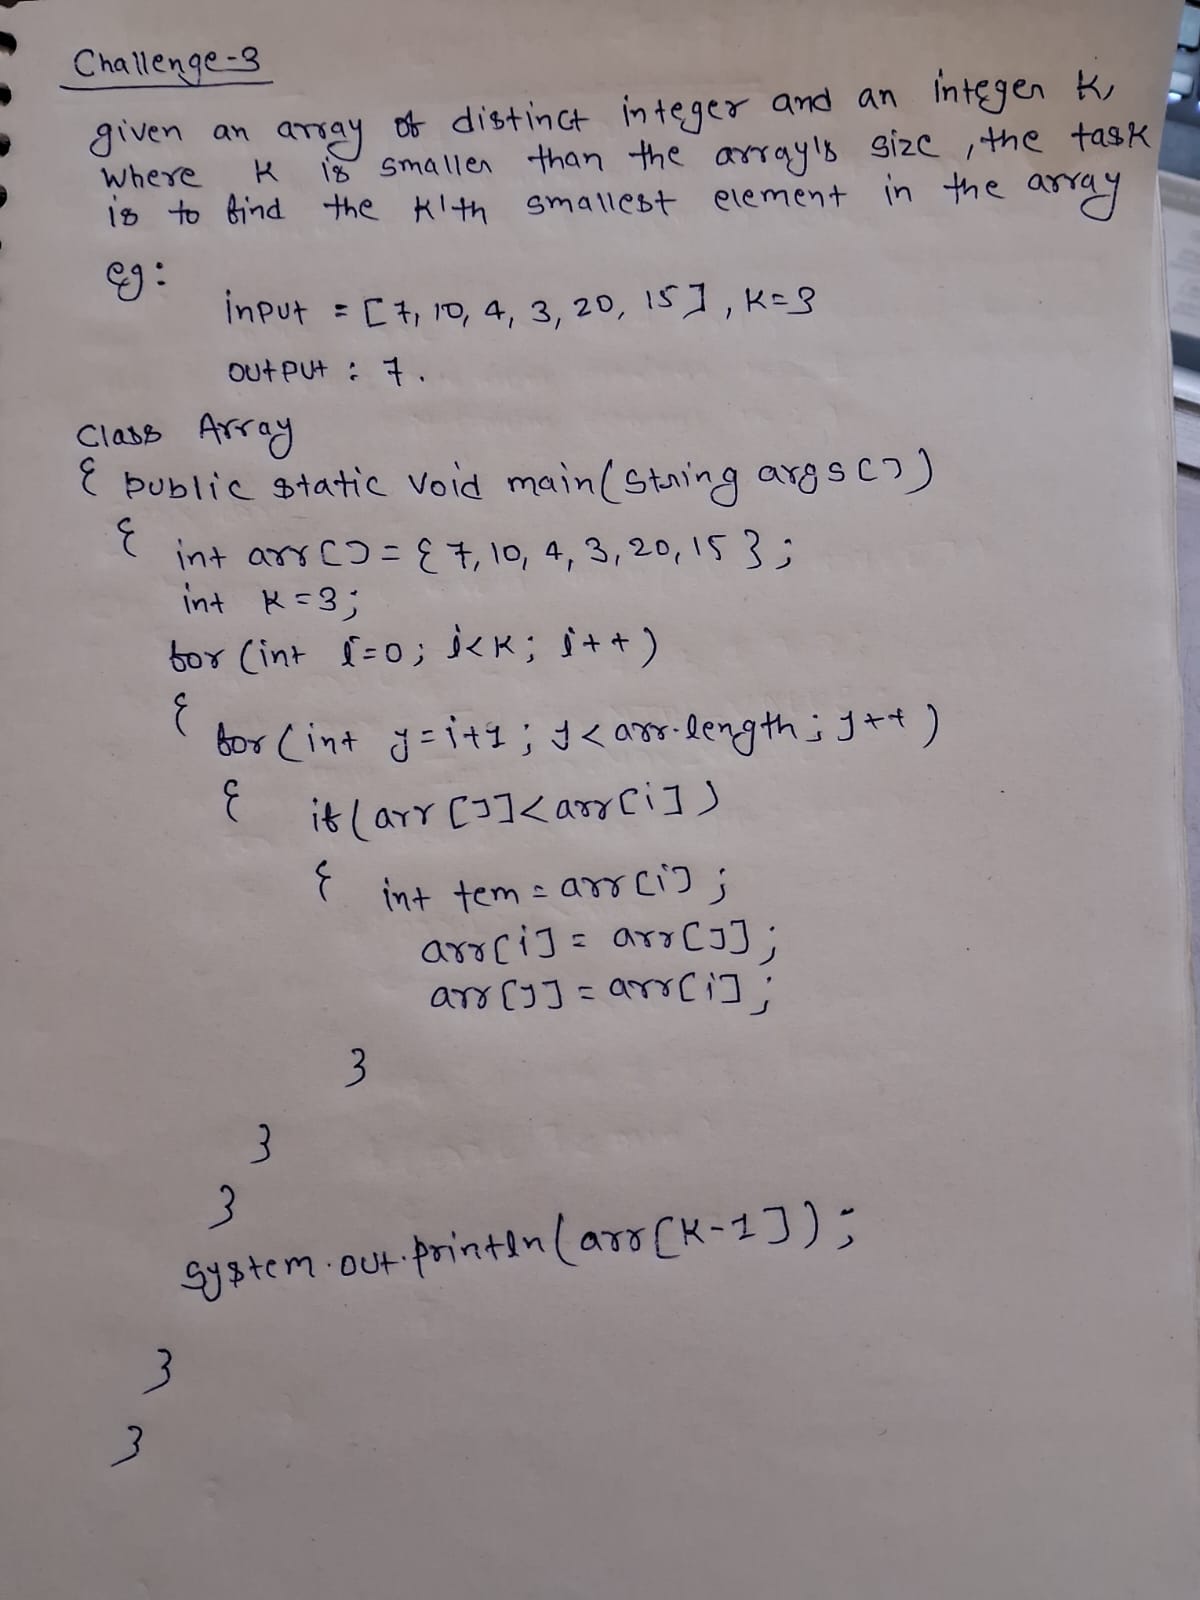 Challenge-3
given an array of distinct integer and an integer K,
where K is smaller than the array's size, the task
is to find the K'th smallest element in the array
eg:
input = [7, 10, 4, 3, 20, 15], K=3
output : 7.
Class Array
{ public static void main(String args[])
{ int arr[] = {7, 10, 4, 3, 20, 15};
int K=3;
for (int i=0; i<K; i++)
{
for (int j=i+1; j<arr.length; j++)
{ if(arr[j]<arr[i])
{ int tem = arr[i];
arr[i] = arr[j];
arr[j] = arr[i];
}
}
}
System.out.println(arr[K-1]);
}
}